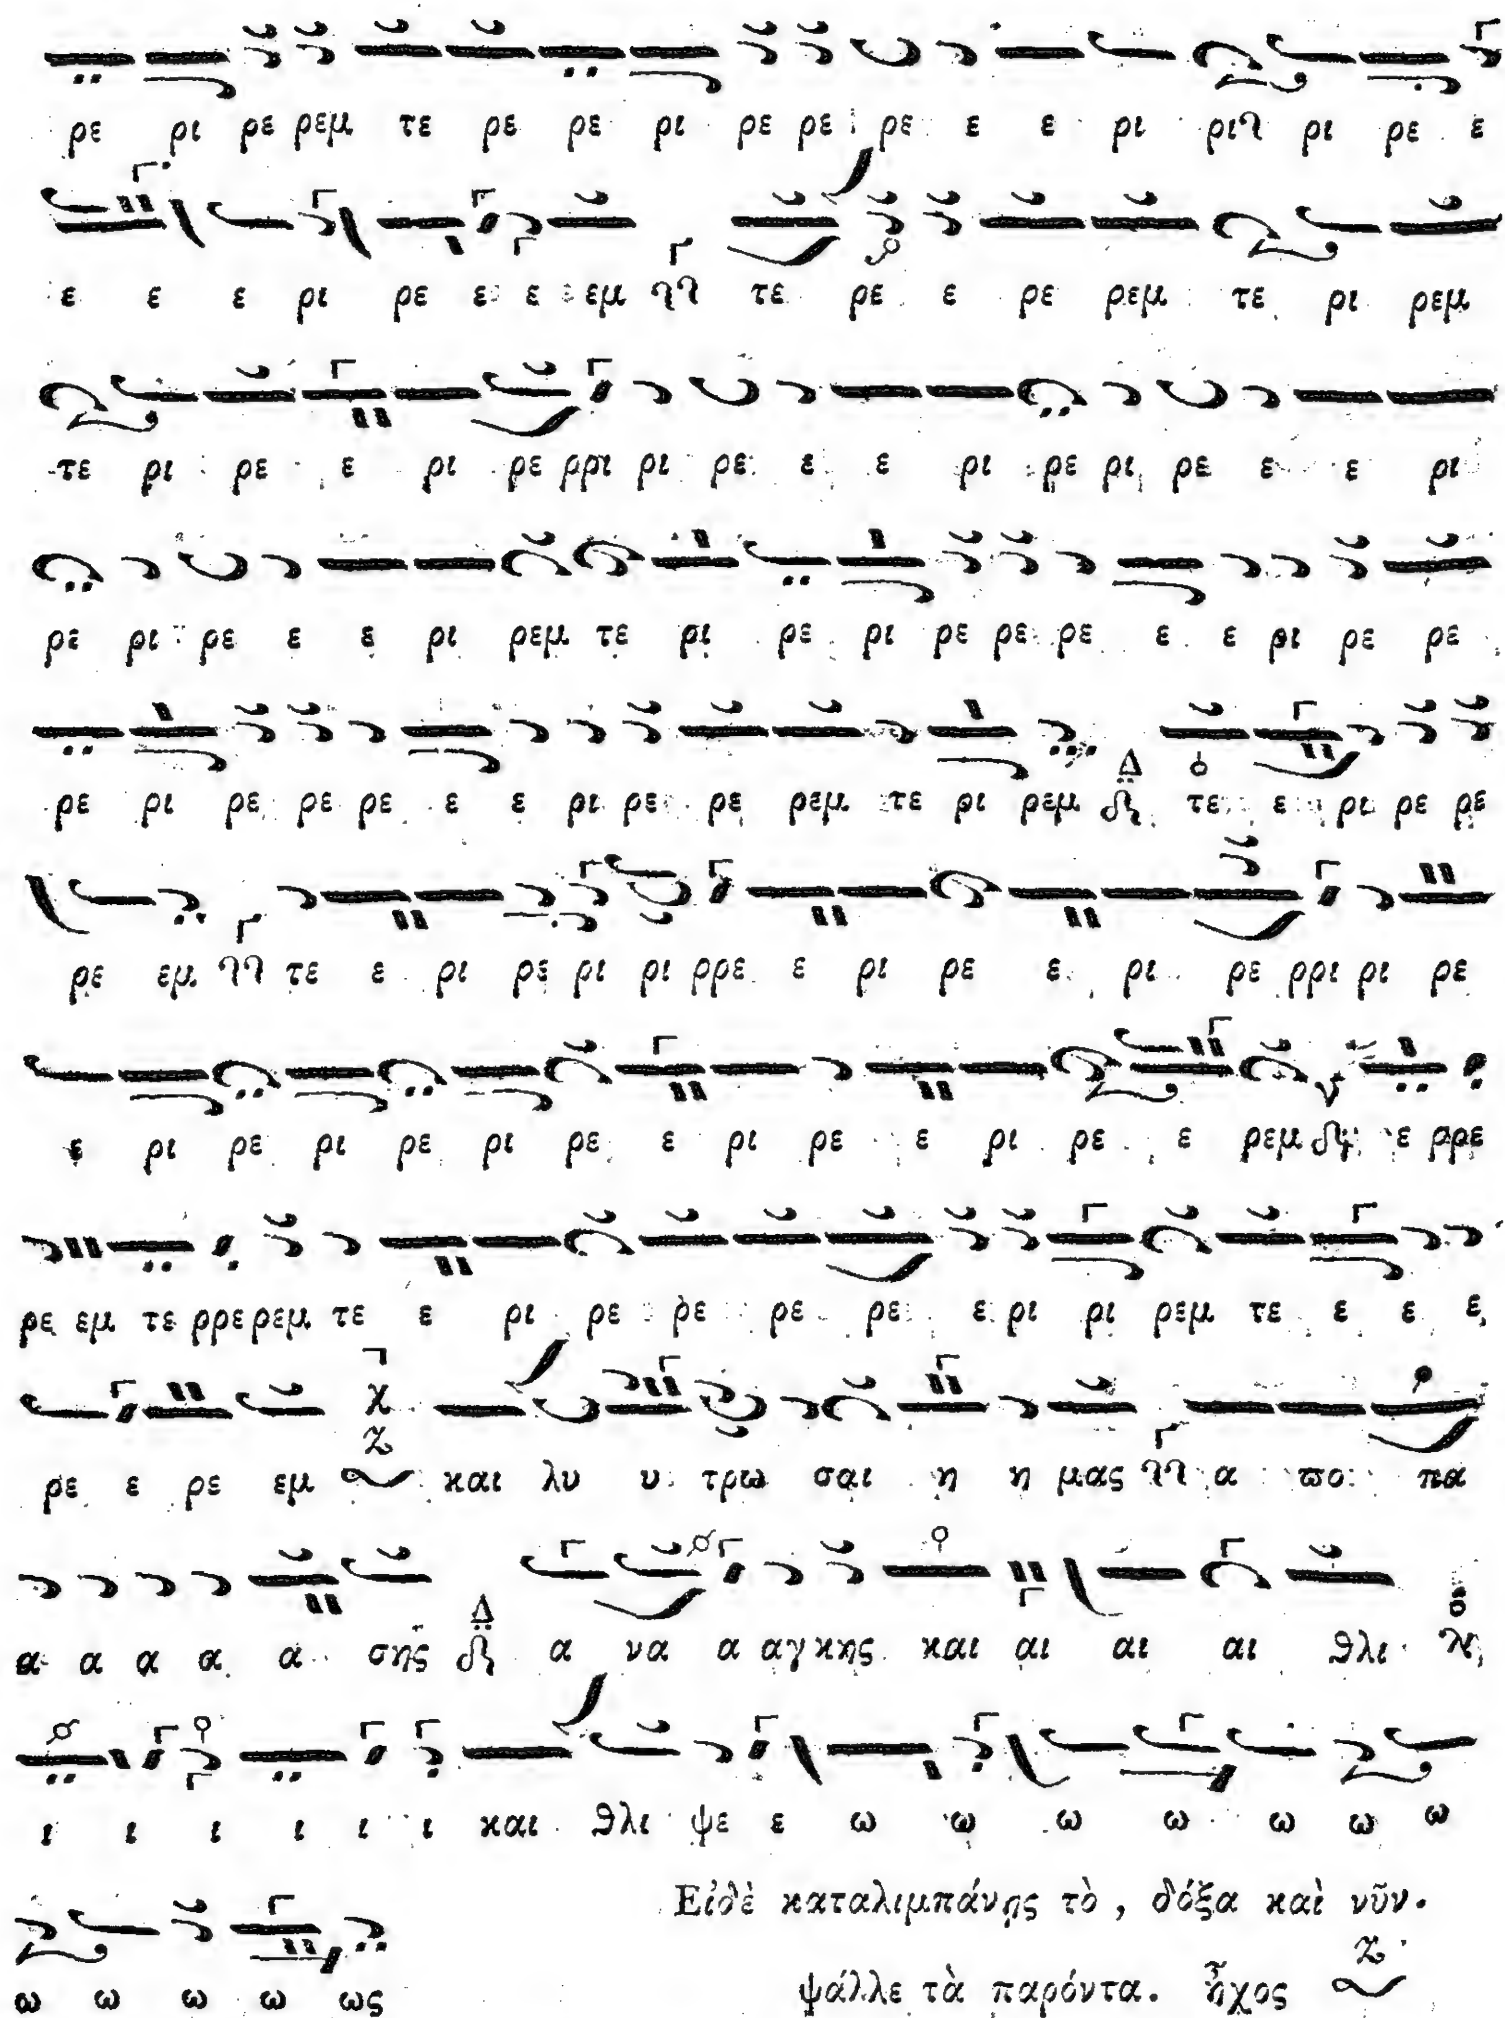 ρε ρι ρε ρεμ τε ρε ρε ρι ρε ρε ρε ε ε ρι ρι ρι ρε ε
ε ε ε ρι ρε ε ε εμ τε ρε ε ρε ρεμ τε ρι ρεμ
τε ρι ρε ε ρι ρε ρρι ρι ρε ε ε ρι ρε ρι ρε ε ε ρι
ρε ρι ρε ε ε ρι ρεμ τε ρι ρε ρι ρε ρε ρε ε ε ρι ρε ρε
ρε ρι ρε ρε ρε ε ε ρι ρε ρε ρεμ τε ρι ρεμ Δ τε ε ρι ρε ρε
ρε εμ τε ε ρι ρε ρι ρι ρρε ε ρι ρε ε ρι ρε ρρι ρι ρε
ε ρι ρε ρι ρε ρι ρε ε ρι ρε ε ρι ρε ε ρεμ ε ρρε
ρε εμ τε ρρε ρεμ τε ε ρι ρε ρε ρε ρε ε ρι ρι ρεμ τε ε ε ε
ρε ε ρε εμ και λυ υ τρω σαι η η μας α ϖο πα
α α α α α σης Δ α να α αγκης και αι αι αι θλι
ι ι ι ι ι ι και θλι ψε ε ω ω ω ω ω ω ω
Εἰδὲ καταλιμπάνῃς τὸ, δόξα καὶ νῦν.
ψάλλε τὰ παρόντα. ἦχος
ω ω ω ω ως